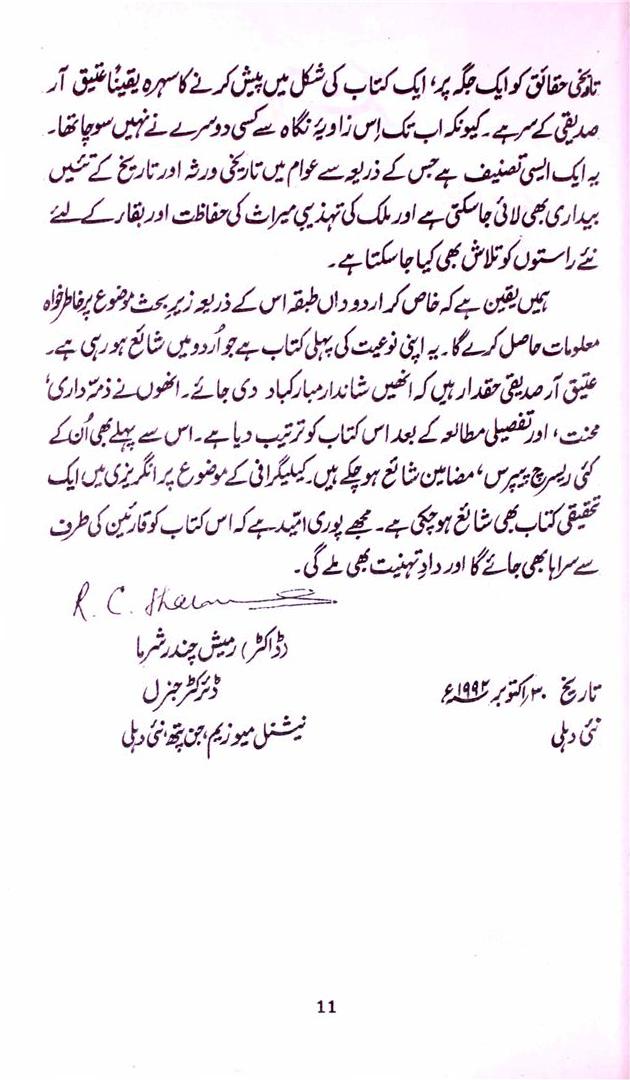 تاریخی حقائق کو ایک جگہ پر، ایک کتاب کی شکل میں پیش کرنے کا سہرہ یقیناً عتیق آر
صدیقی کے سر ہے۔ کیونکہ اب تک اِس زاویۂ نگاہ سے کسی دوسرے نے نہیں سوچا تھا۔
یہ ایک ایسی تصنیف ہے جس کے ذریعہ سے عوام میں تاریخی ورثہ اور تاریخ کے تئیں
بیداری بھی لائی جاسکتی ہے اور ملک کی تہذیبی میراث کی حفاظت اور بقار کے لئے
نئے راستوں کو تلاش بھی کیا جاسکتا ہے۔
ہمیں یقین ہے کہ خاص کر اردو داں طبقہ اس کے ذریعہ زیرِ بحث موضوع پر خاطر خواہ
معلومات حاصل کرے گا۔ یہ اپنی نوعیت کی پہلی کتاب ہے جو اُردو میں شائع ہو رہی ہے۔
عتیق آر صدیقی حقدار ہیں کہ انھیں شاندار مبارکباد دی جائے۔ انھوں نے ذمّہ داری،
محنت، اور تفصیلی مطالعہ کے بعد اس کتاب کو ترتیب دیا ہے۔ اس سے پہلے بھی اُن کے
کئی ریسرچ پیپرس، مضامین شائع ہو چکے ہیں۔ کیلیگرافی کے موضوع پر انگریزی میں ایک
تحقیقی کتاب بھی شائع ہوچکی ہے۔ مجھے پوری امّید ہے کہ اس کتاب کو قارئین کی طرف
سے سراہا بھی جائے گا اور دادِ تہنیت بھی ملے گی۔
R. C. Sharma
(ڈاکٹر) رمیش چندر شرما
تاریخ ۳۰ اکتوبر ۱۹۹۲ء ڈائرکٹر جنرل
نئی دہلی نیشنل میوزیم، جن پتھ، نئی دہلی
11